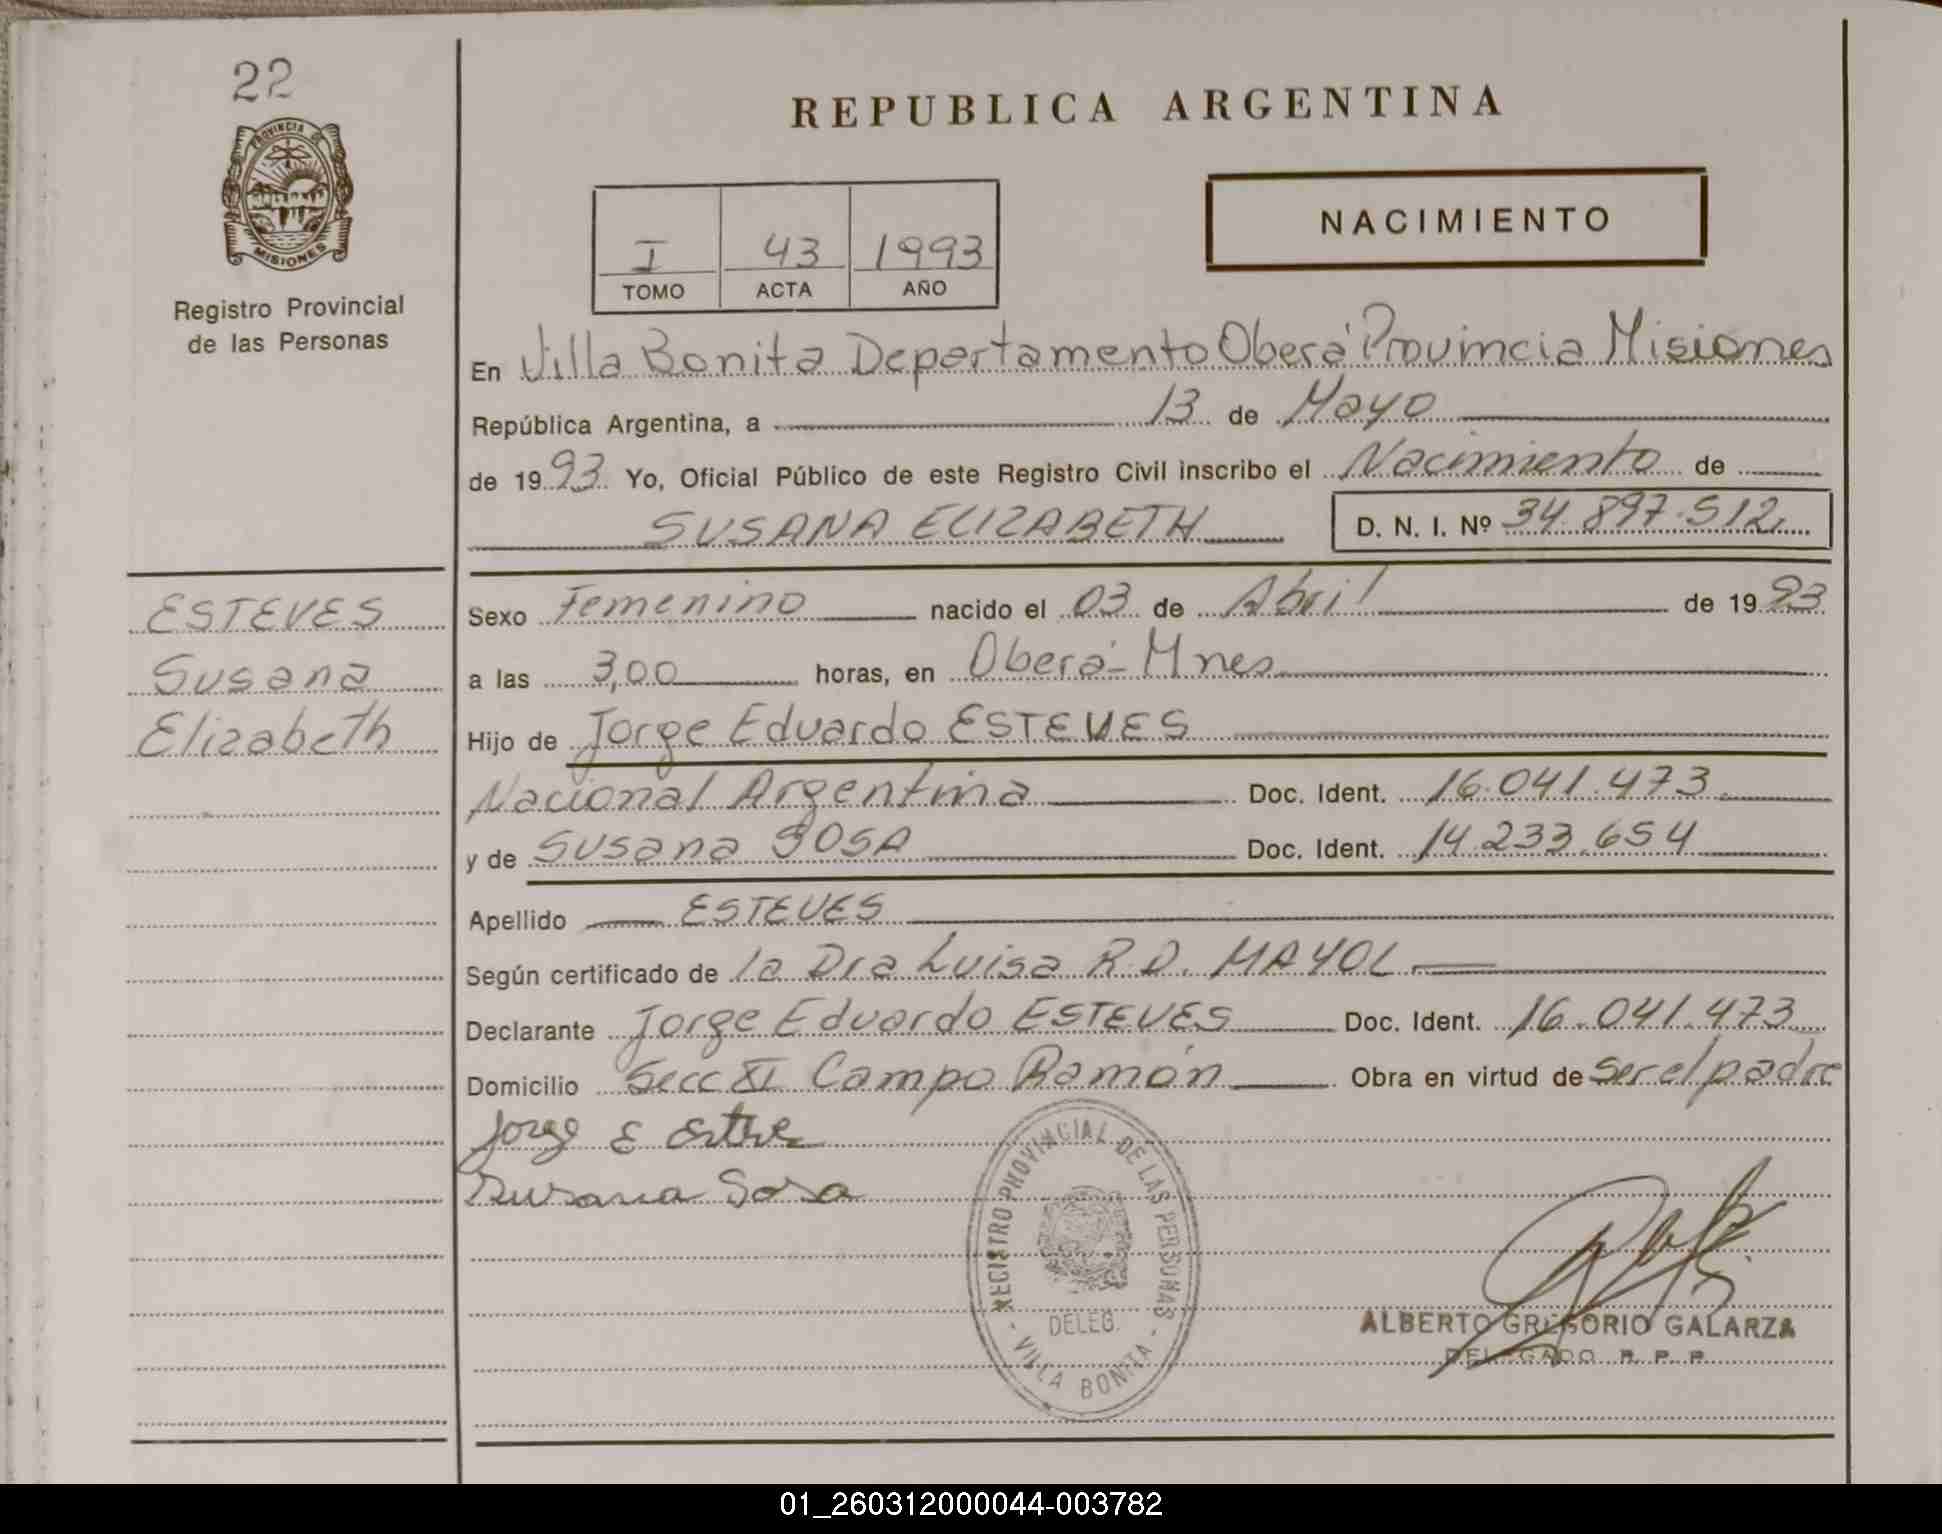 22
PROVINCIA DE
MISIONES
Registro Provincial
de las Personas
REPUBLICA ARGENTINA
I 43 1993
TOMO ACTA AÑO
NACIMIENTO
En Villa Bonita Departamento Oberá Provincia Misiones
República Argentina, a 13 de Mayo
de 1993 Yo, Oficial Público de este Registro Civil inscribo el Nacimiento de
SUSANA ELIZABETH D. N. I. Nº 34.897.512.
ESTEVES
Susana
Elizabeth
Sexo Femenino nacido el 03 de Abril de 1993
a las 3,00 horas, en Oberá-Mnes
Hijo de Jorge Eduardo ESTEVES
Nacional Argentina Doc. Ident. 16.041.473
y de Susana SOSA Doc. Ident. 14.233.654
Apellido ESTEVES
Según certificado de la Dra Luisa R.D. MAYOL
Declarante Jorge Eduardo ESTEVES Doc. Ident. 16.041.473
Domicilio Secc XI Campo Ramón Obra en virtud de ser el padre
Jorge E Esteve
Susana Sosa
REGISTRO PROVINCIAL DE LAS PERSONAS
DELEG.
- VILLA BONITA -
ALBERTO GREGORIO GALARZA
DELEGADO R. P. P.
01_260312000044-003782